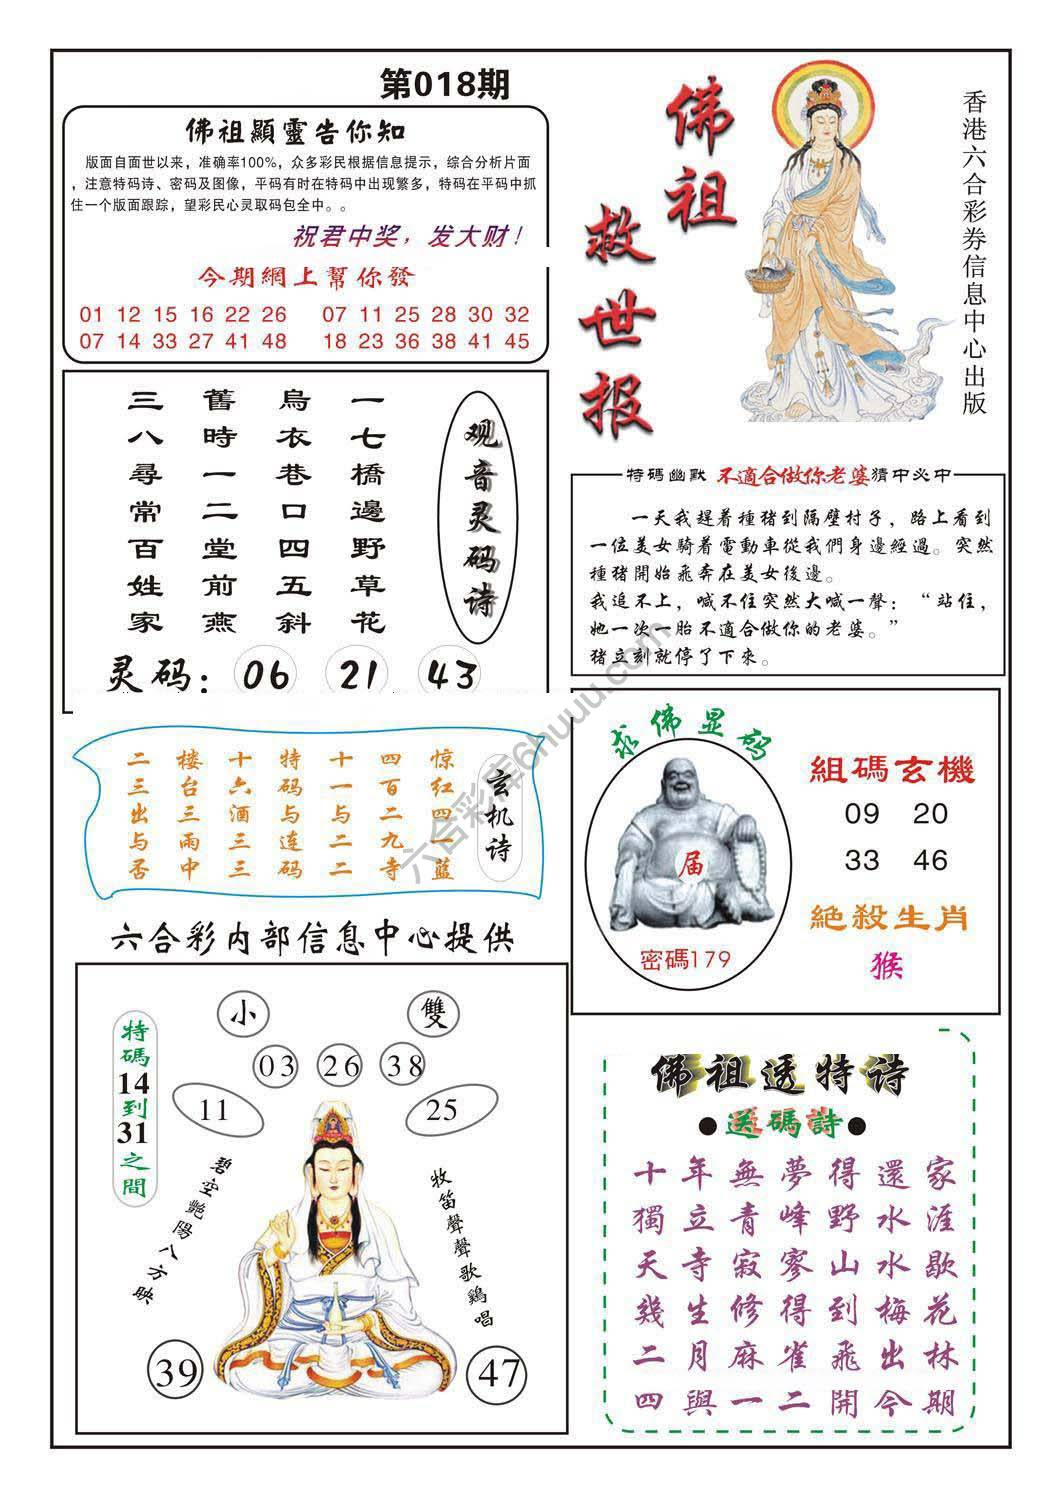 第018期
佛祖顯靈告你知
版面自面世以来，准确率100%，众多彩民根据信息提示，综合分析片面
，注意特码诗、密码及图像，平码有时在特码中出现繁多，特码在平码中抓
住一个版面跟踪，望彩民心灵取码包全中。。
祝君中奖，发大财！
今期網上幫你發
01 12 15 16 22 26 07 11 25 28 30 32
07 14 33 27 41 48 18 23 36 38 41 45
佛祖
救世报
香港六合彩券信息中心出版
观音灵码诗
一七橋邊野草花
烏衣巷口四五斜
舊時一二堂前燕
三八尋常百姓家
灵码：06 21 43
特碼幽默 不適合做你老婆 猜中必中
一天我趕着種猪到隔壁村子，路上看到
一位美女騎着電動車從我們身邊經過。突然
種猪開始飛奔在美女後邊。
我追不上，喊不住突然大喊一聲：“站住，
她一次一胎不適合做你的老婆。”
猪立刻就停了下來。
玄机诗
惊红四一蓝
四百二九寺
十一与二二
特码与连码
十六酒三三
楼台三雨中
二三出与否
求佛显码
届
密碼179
組碼玄機
09 20
33 46
絕殺生肖
猴
六合彩内部信息中心提供
小 雙
03 26 38
11 25
特碼14到31之間
碧空艷陽八方映
牧笛聲聲歌鷄唱
39 47
佛祖透特诗
●送碼詩●
十年無夢得還家
獨立青峰野水涯
天寺寂寥山水歇
幾生修得到梅花
二月麻雀飛出林
四與一二開今期
六合彩库6huuu.com